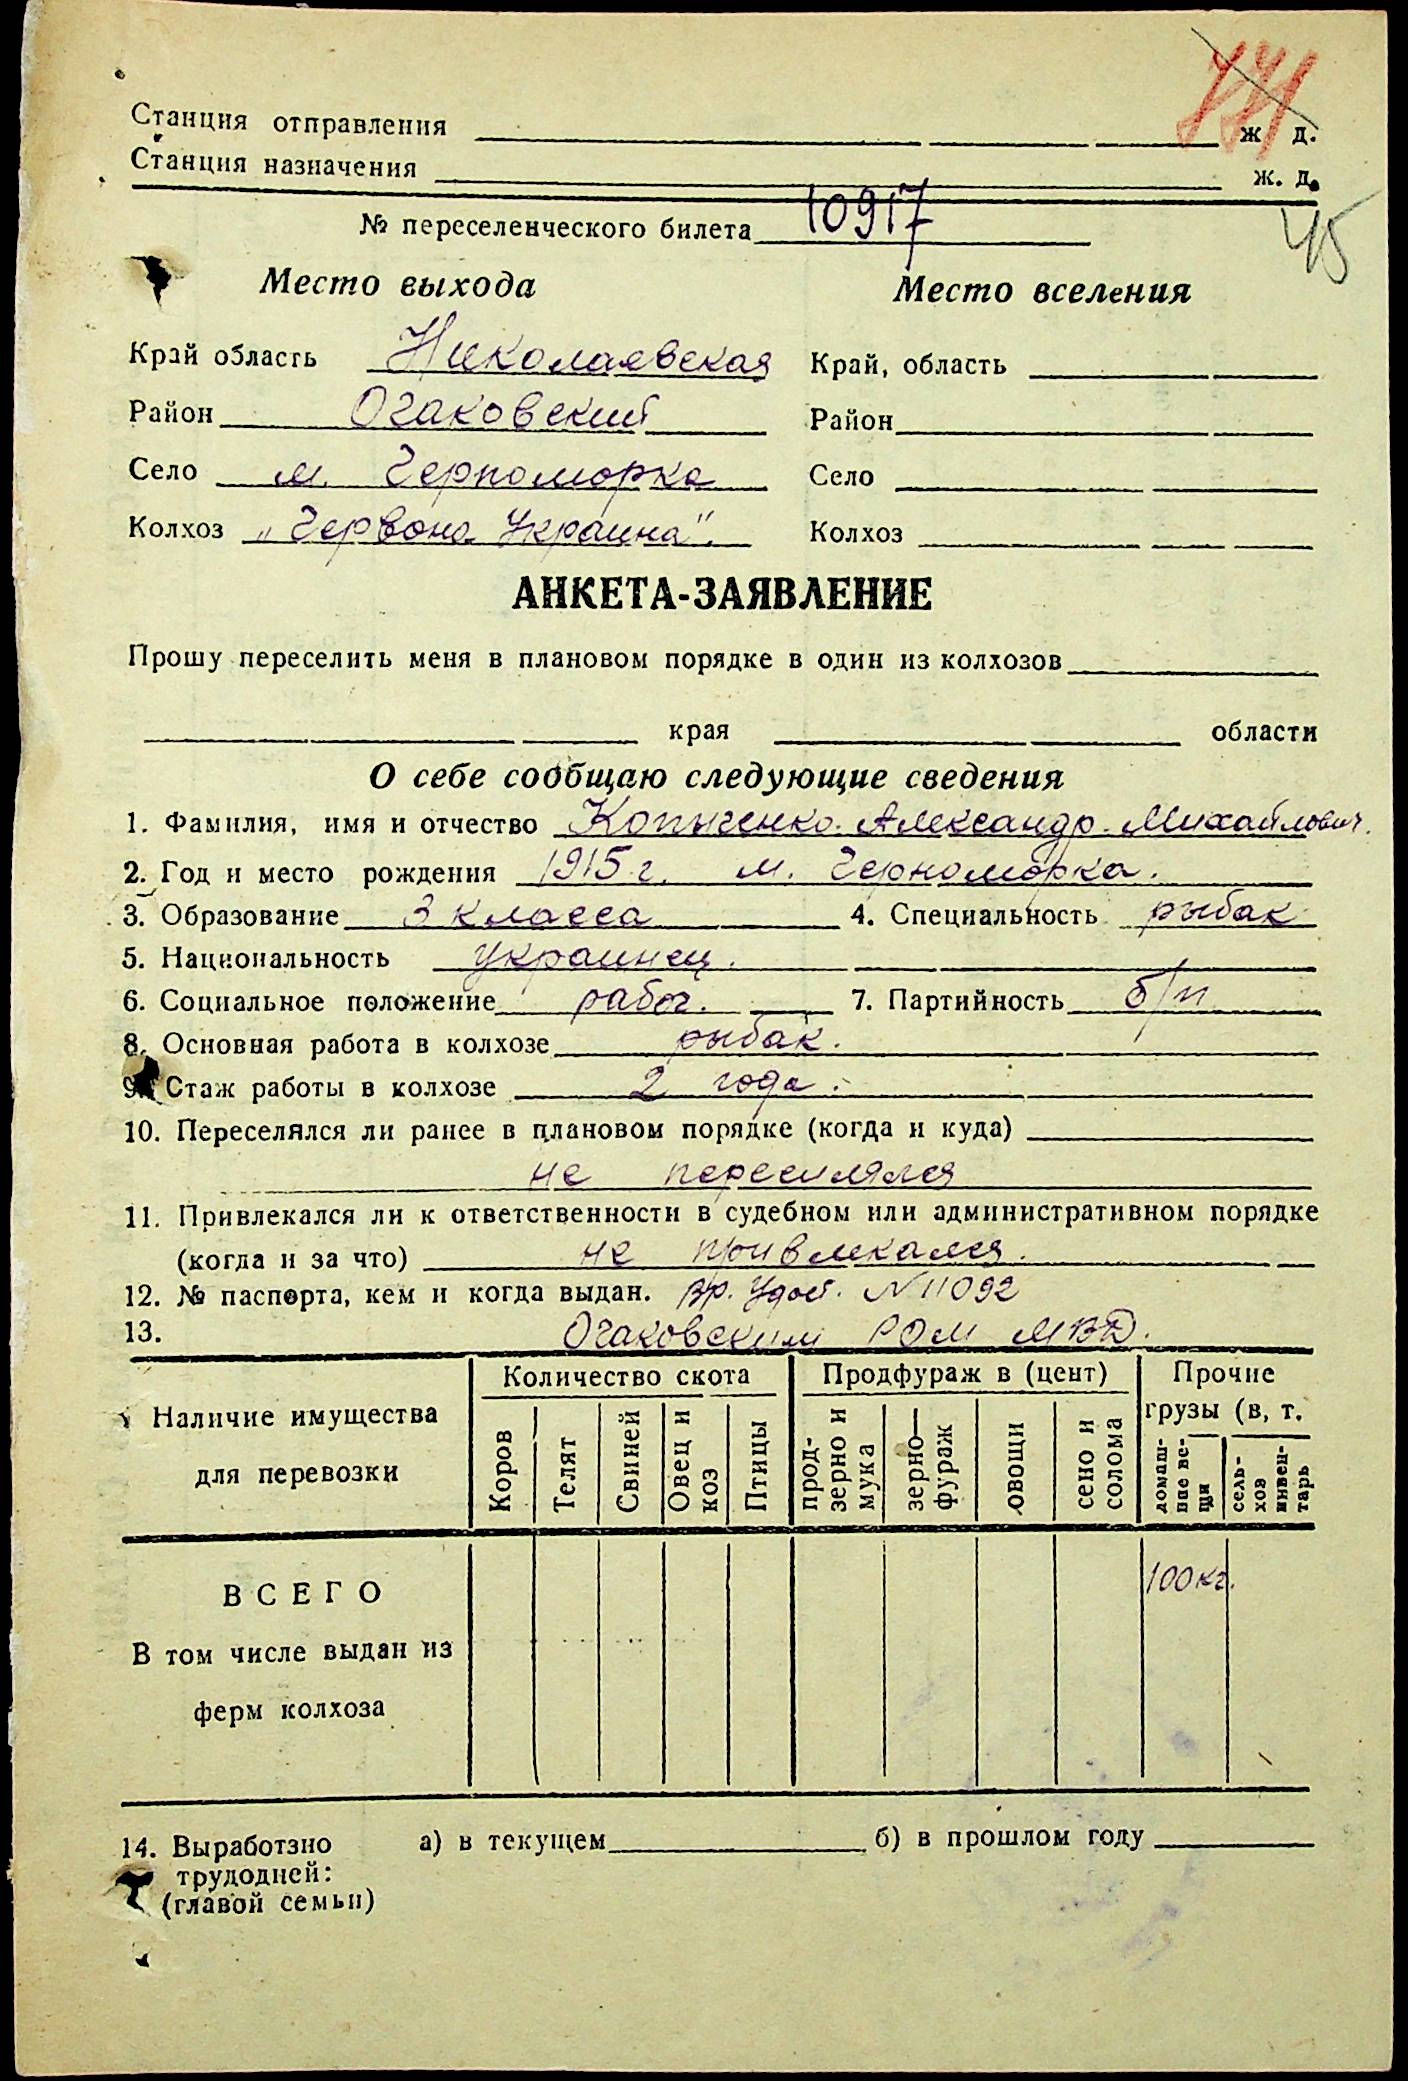 771
Станция отправления ж д.
Станция назначения ж. д.
45
№ переселенческого билета 10917
Место выхода Место вселения
Край область Николаевская Край, область
Район Очаковский Район
Село м. Черноморка Село
Колхоз „Червона Украина". Колхоз
АНКЕТА-ЗАЯВЛЕНИЕ
Прошу переселить меня в плановом порядке в один из колхозов
края области
О себе сообщаю следующие сведения
1. Фамилия, имя и отчество Копыченко Александр Михайлович.
2. Год и место рождения 1915 г. м. Черноморка.
3. Образование 3 класса 4. Специальность рыбак
5. Национальность украинец.
6. Социальное положение рабоч. 7. Партийность б/п
8. Основная работа в колхозе рыбак.
9. Стаж работы в колхозе 2 года.
10. Переселялся ли ранее в плановом порядке (когда и куда)
не переселялся
11. Привлекался ли к ответственности в судебном или административном порядке
(когда и за что) не привлекался.
12. № паспорта, кем и когда выдан. Вр. Удост. N 11092
13. Очаковским РОМ МВД.
Наличие имущества для перевозки
Количество скота
Коров Телят Свиней Овец и коз Птицы
Продфураж в (цент)
прод-зерно и мука зерно-фураж овощи сено и солома
Прочие грузы (в, т.
домаш-ние ве-щи сель-хоз инвен-тарь
ВСЕГО 100 кг.
В том числе выдан из
ферм колхоза
14. Выработзно а) в текущем б) в прошлом году
трудодней:
(главой семьи)